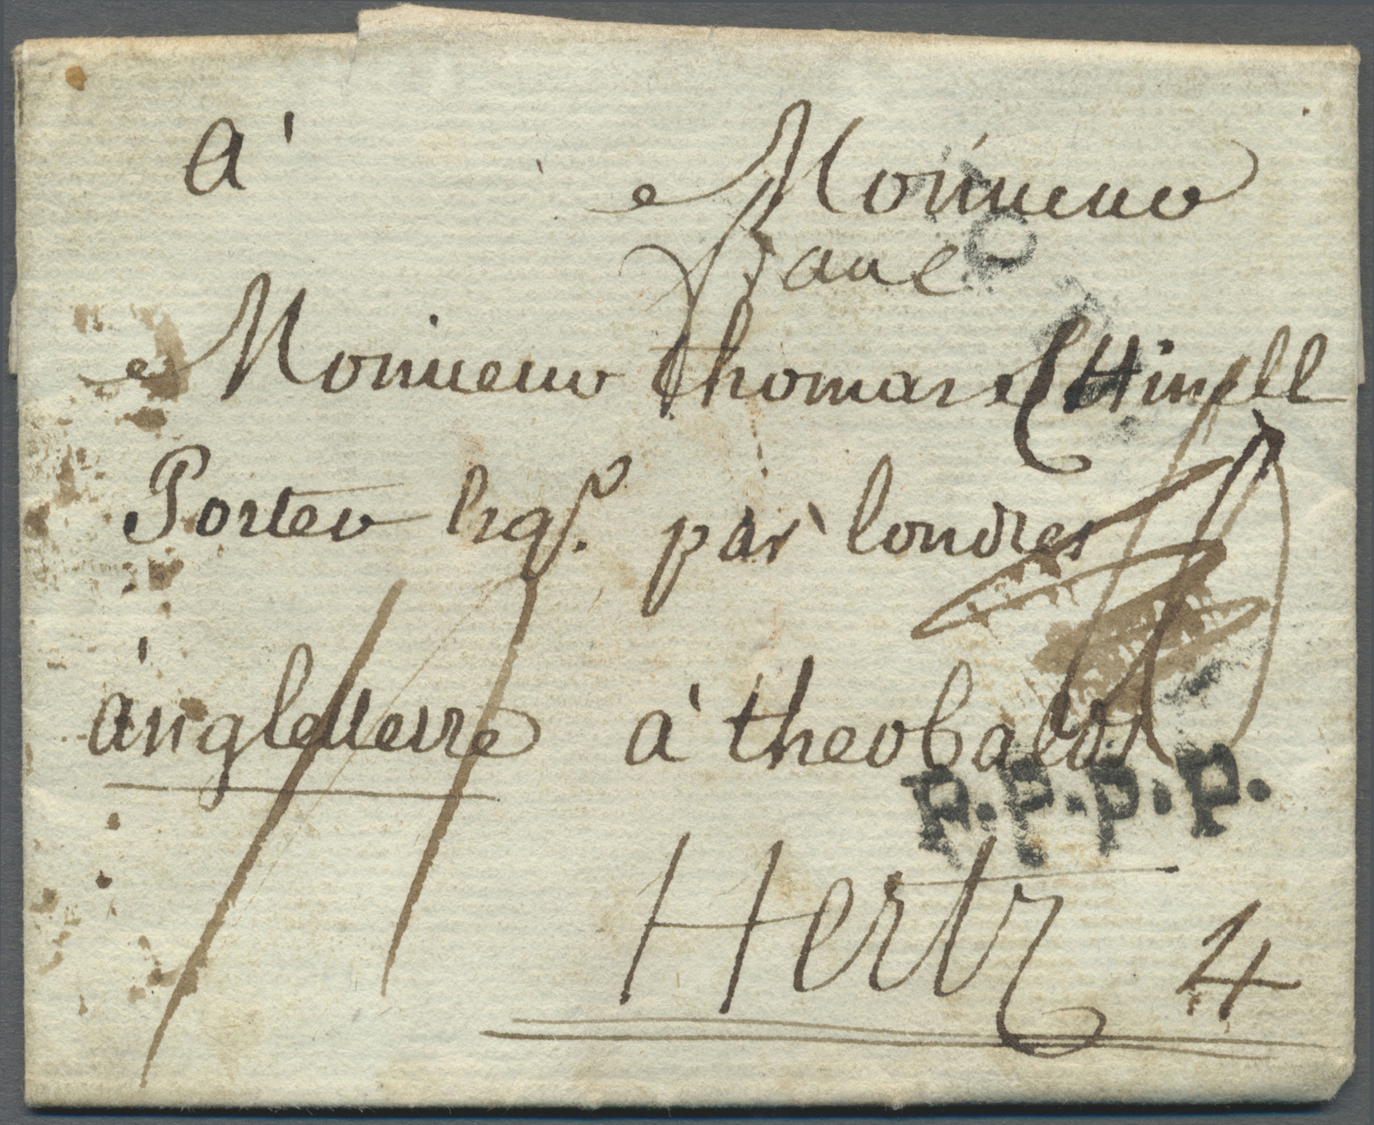 A'
Monsieur
Monsieur thomas
Porter Esqr. par londres
angleterre à theobalds
P.P.P.P.
Hertz 4